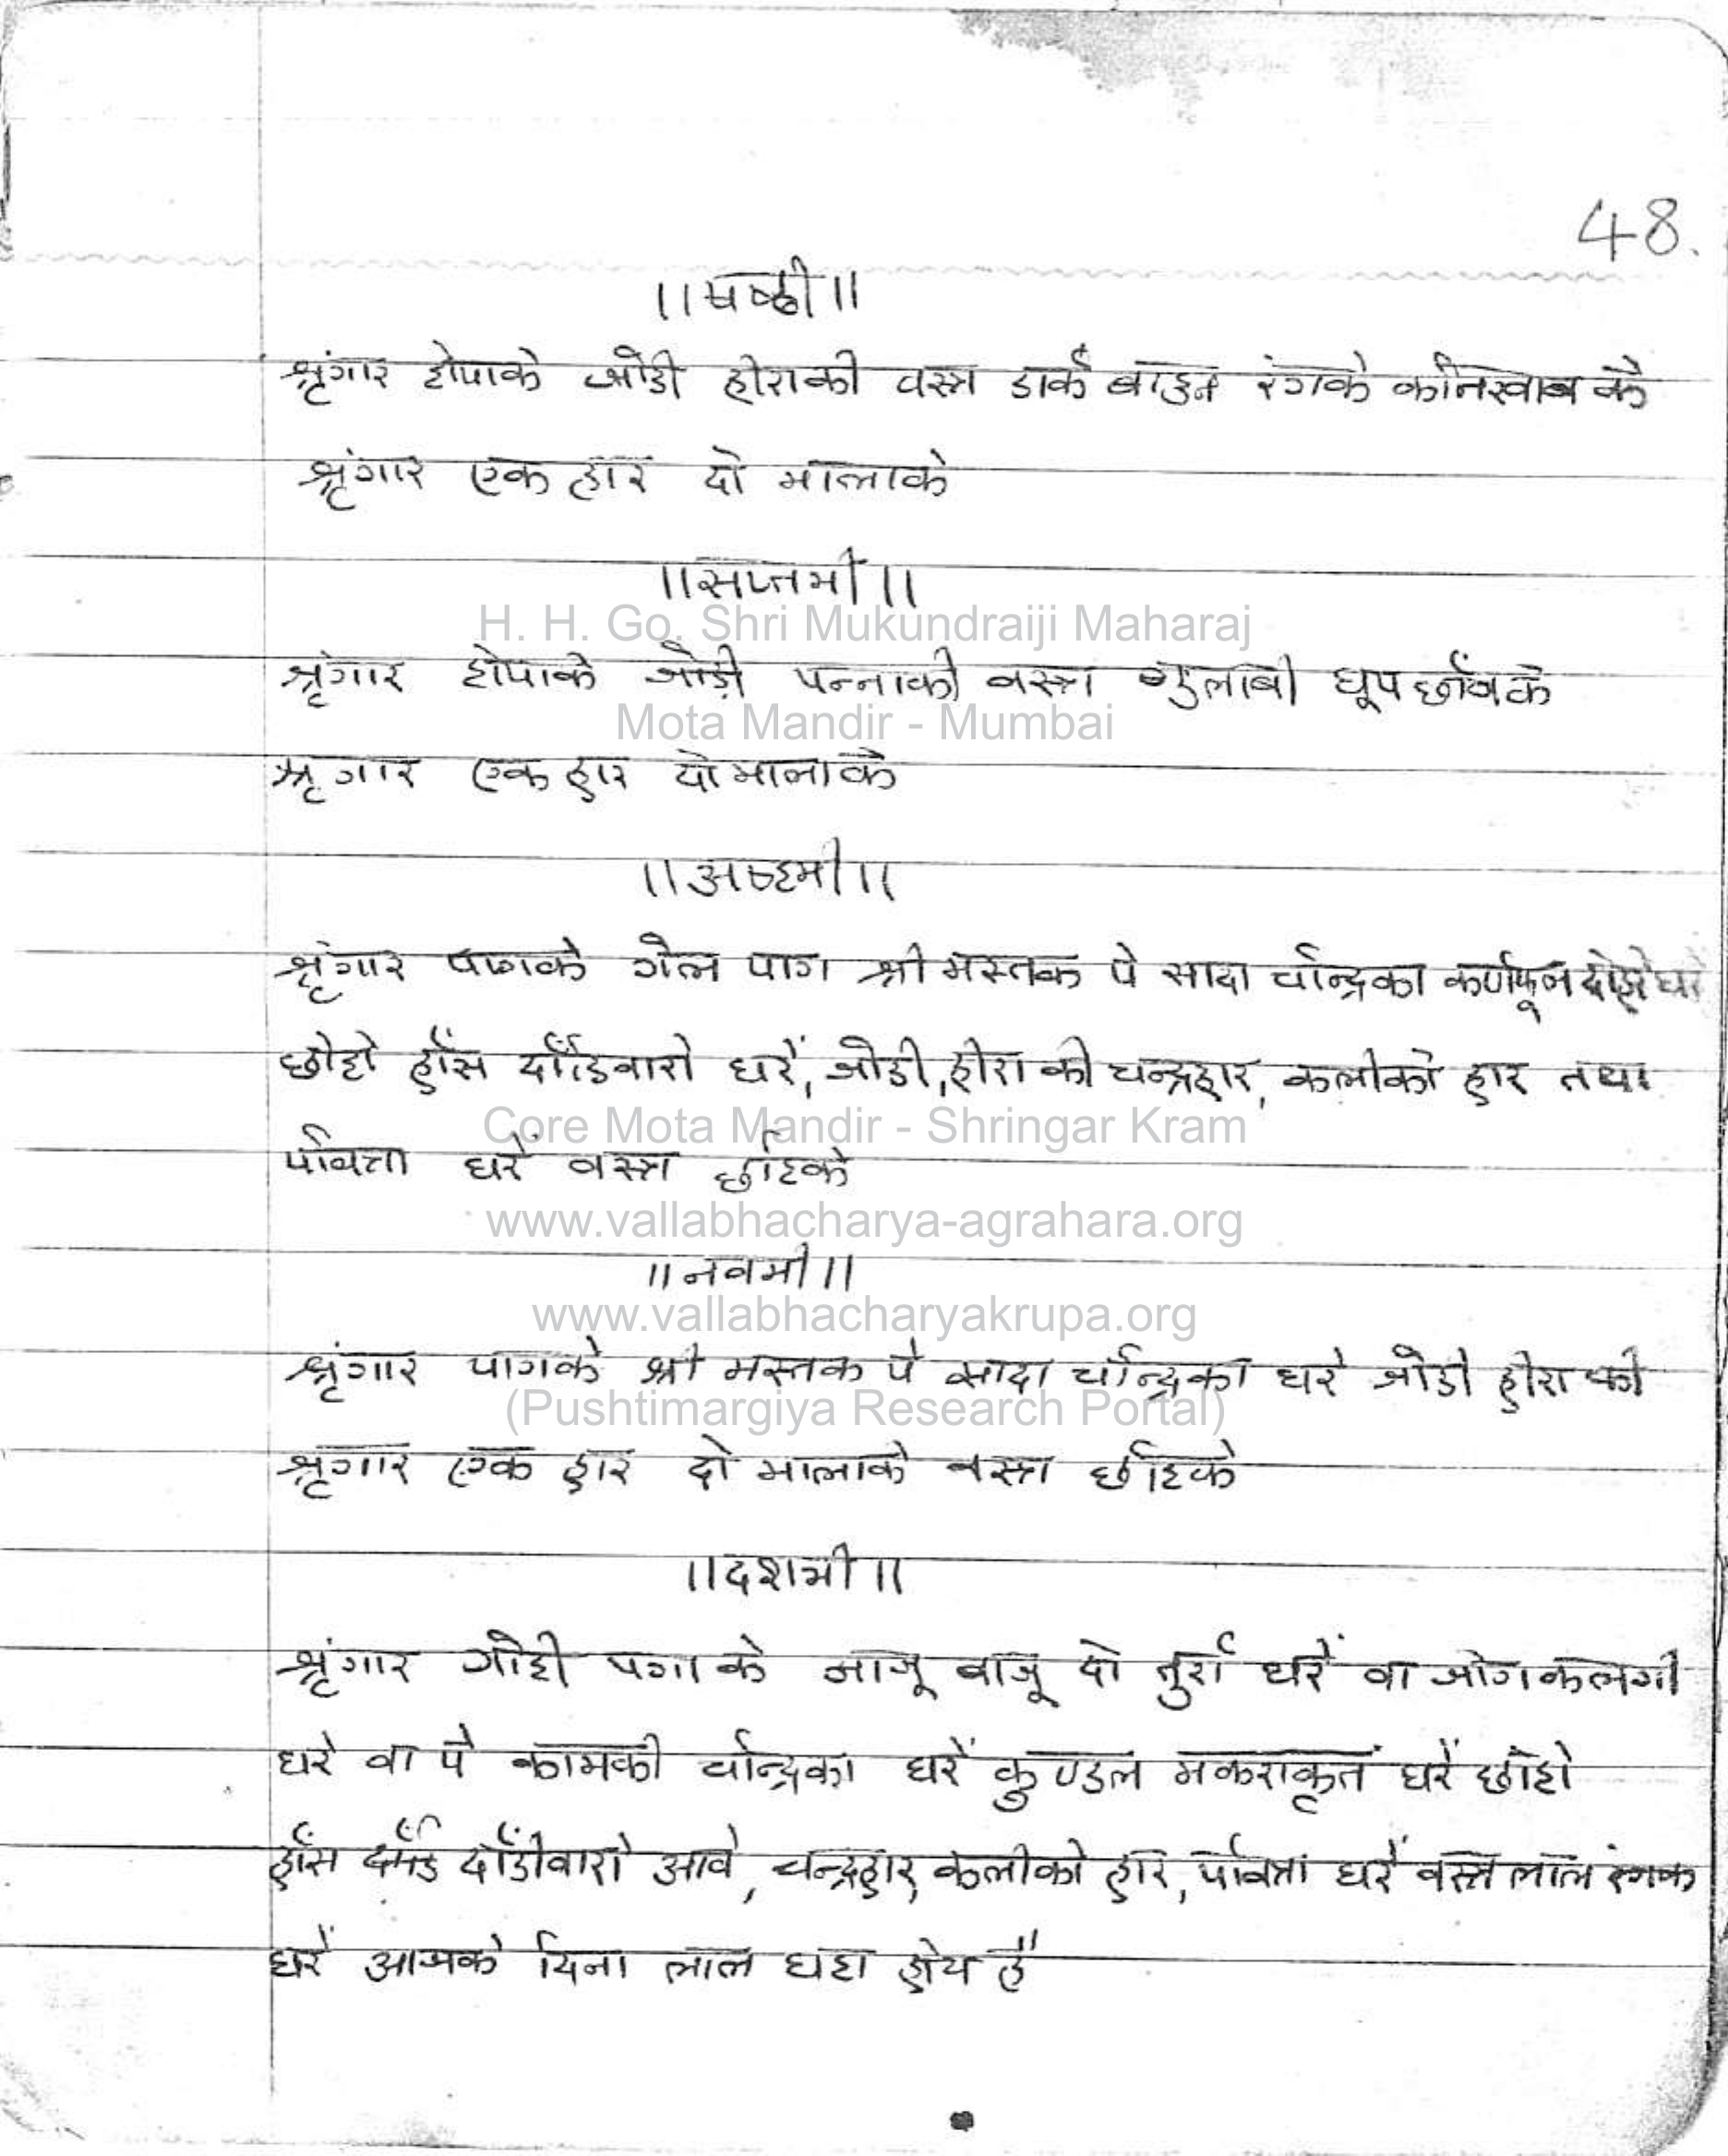 48.
।।षष्ठी।।
श्रृंगार टोपाके जोडी हीराकी वस्त्र डार्क ब्राउन रंगके कीनखाब के
श्रृंगार एक हार दो मालाके
।।सप्तमी।।
H. H. Go. Shri Mukundraiji Maharaj
श्रृंगार टोपाके जोड़ी पन्नाकी वस्त्र गुलाबी धूपछाँवके
Mota Mandir - Mumbai
श्रृगार एक हार दो मालाके
।।अष्टमी।।
श्रृंगार पागके गोल पाग श्री मस्तक पे सादा चन्द्रिका कर्णफूल धरें
छोटो हाँस दाँडिवारो धरें, जोडी, हीरा की चन्द्रहार, कलीको हार तथा
Core Mota Mandir - Shringar Kram
पवित्रा धरें वस्त्र छींटके
www.vallabhacharya-agrahara.org
।।नवमी।।
www.vallabhacharyakrupa.org
श्रृंगार पागके श्री मस्तक पे सादा चन्द्रिका धरे जोडी हीरा की
(Pushtimargiya Research Portal)
श्रृगार एक हार दो मालाके वस्त्र छींटके
।।दशमी।।
श्रृंगार गोटी पगा के आजू बाजू दो तुर्रा धरें वा जोग कलगी
धरे वा पे कामकी चन्द्रिका धरें कुण्डल मकराकृत धरें छोटो
हाँस दाँडीवारो आवे, चन्द्रहार, कलीको हार, पवित्रा धरें वस्त्र लाल रंगके
धरें आजके दिना लाल घटा होय है